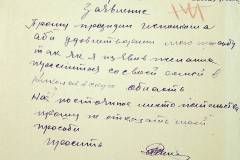 Заявление
Прошу
удовлетворить мою просьбу
так как я изъявил желание
переселится со своей семьей в
Николаевскую область
На постоянное место жительства
прошу не отказать моей
просьби
просить